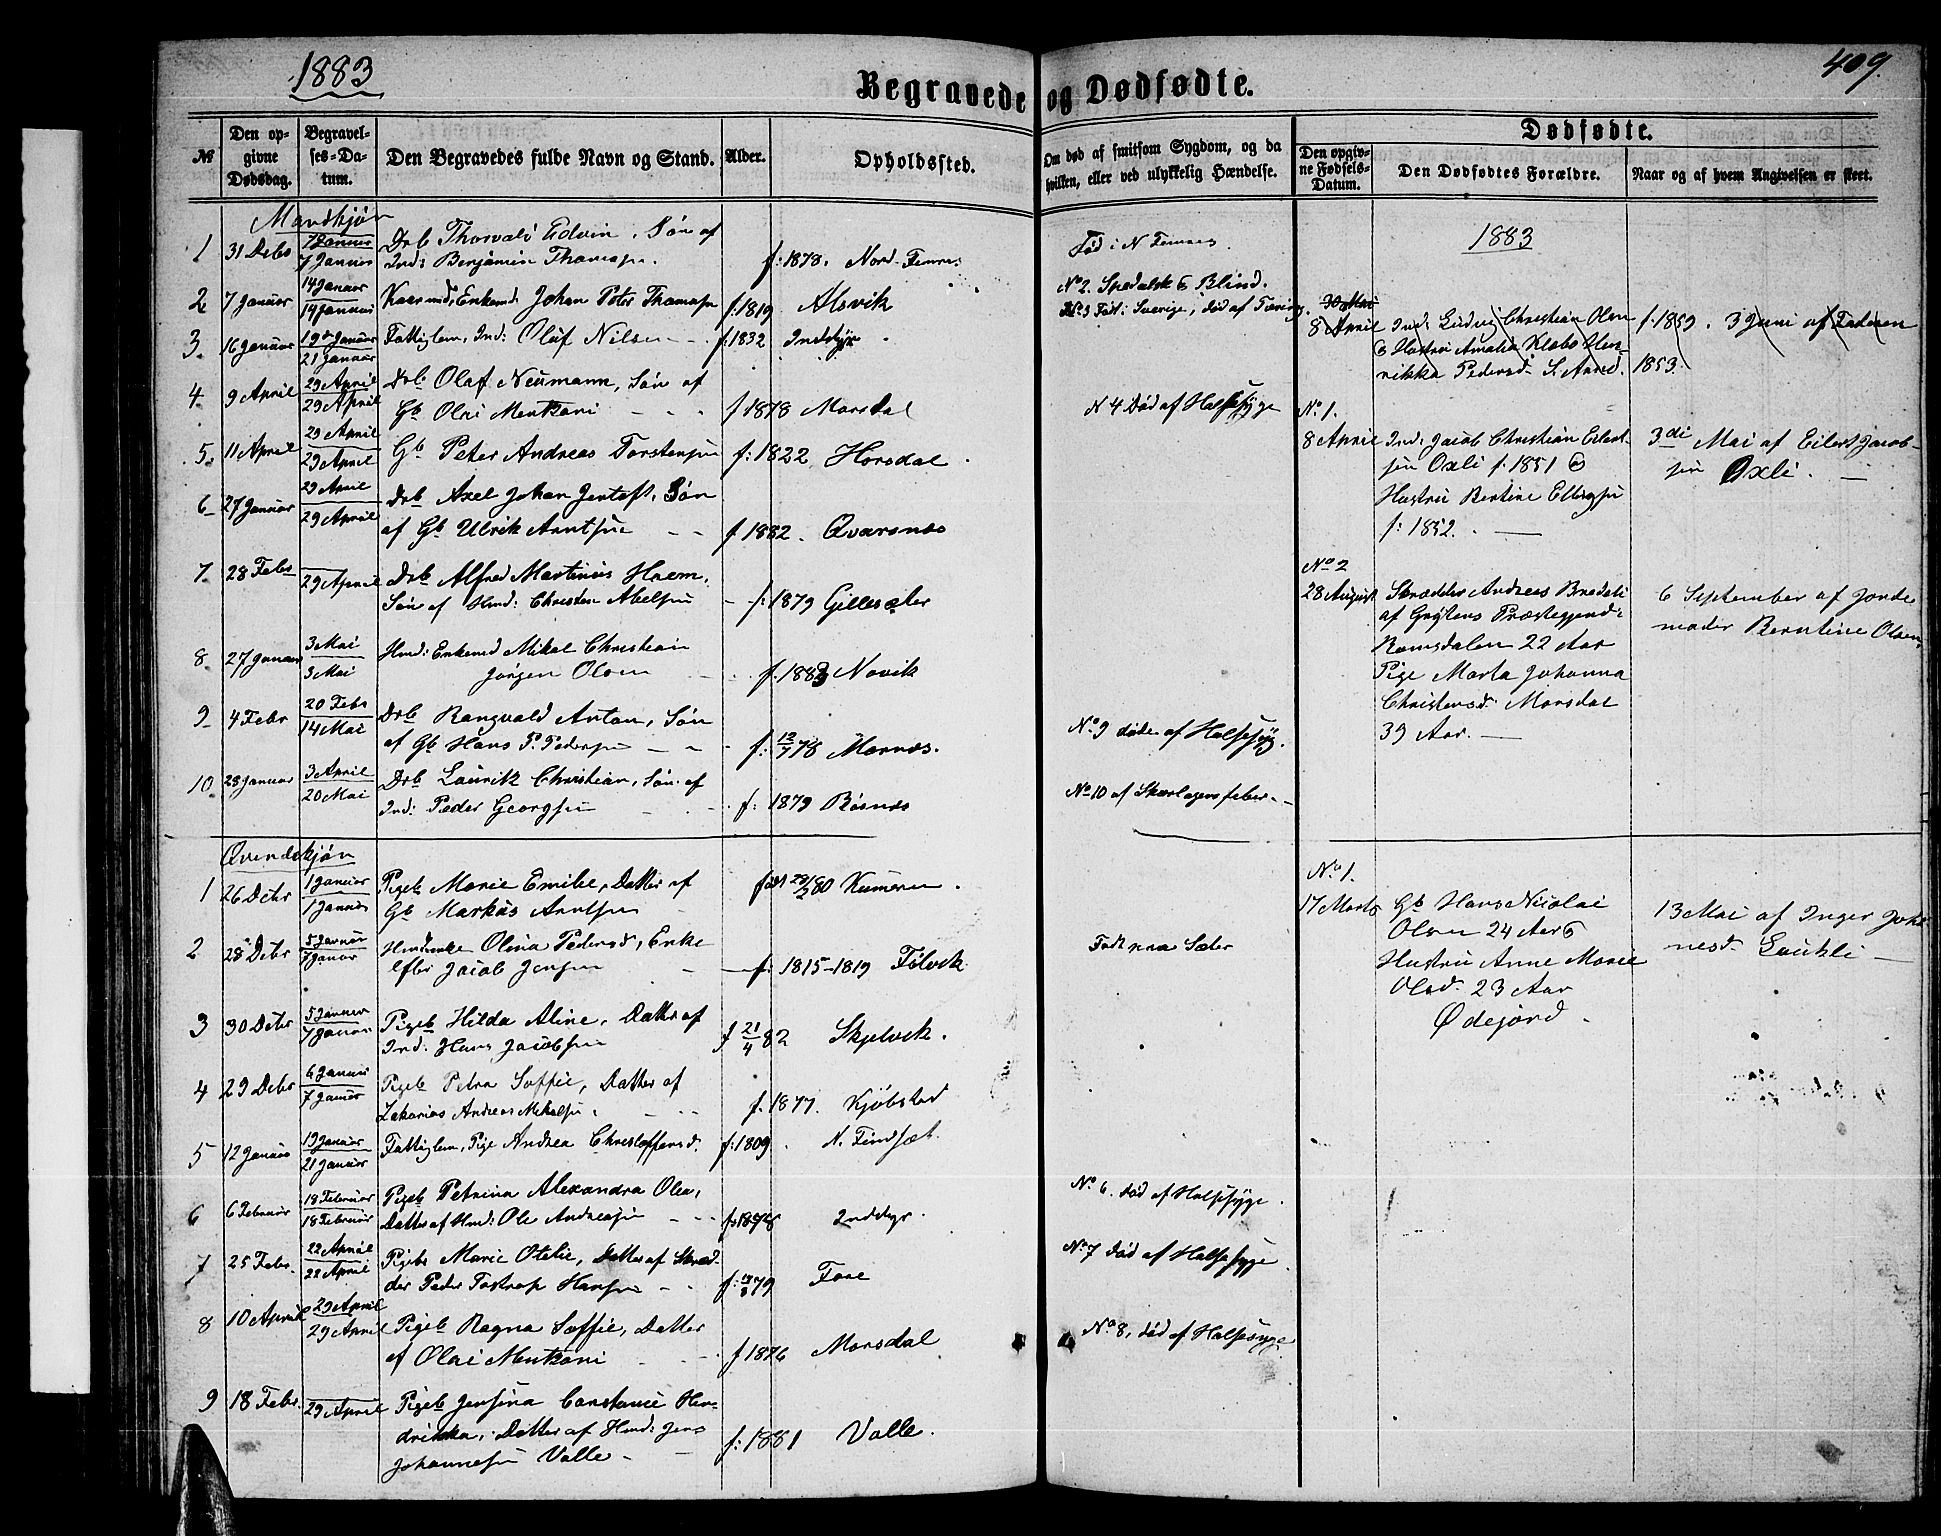 1883
Begravede og Dødfødte.
409.
№
Den opgivne Dødsdag.
Begravelses-Datum.
Den Begravedes fulde Navn og Stand.
Alder.
Opholdssted.
Om død af smitsom Sygdom, og da
hvilken, eller ved ulykkelig Hændelse.
Dødfødte.
Den opgivne Fødsels-Datum.
Den Dødfødtes Forældre.
Naar og af hvem Angivelsen er skeet.
Mandkjøn
1 31 Debr 7 Januar Drb Thorvald Edvin, Søn af
7 Januar Ind: Benjamin Thomassen. f: 1878. Nord-
Fød i N
2 7 Januar 14 Januar Enkemd: Johan Peter Thomassen f. 1819 Alsvik
14 Januar
No 2. Spedalsk & Blind.
3. 16 Januar 19de Januar Fattiglem, Ind: Oluf Nilsen f. 1832 Inddyr
21 Januar
No 3 Født i Sverige, død af Tæring.
4. 9 April 29 April Drb: Olaf Neumann, Søn af
29 April Gb Olai Mentzoni f 1878 Morsdal
N 4 Død af Halssyge
5. 11 April 29 April Gb Peter Andreas Torstensen f: 1822 Horsdal
29 April
6 27 Januar 29 April Drb Axel Johan Jentoft, Søn
29 April af Gb Ulrik Arntsen f. 1882. Qvarsnæs
7. 28 Febr 29 April Drb Alfred Martinus Hvem,
Søn af Hmd: Christen Abelsen f: 1879 Gillesæter
8. 27 Januar 3 Mai Hmd: Enkemd Mikal Christian
3 Mai Jørgen Olsen f. 1883 Novik
9 4 Febr 20 Febr Drb Rangvald Anton, Søn
14 Mai af Gb Hans P. Pedersen f: 12/7 78 Mørnæs.
No 9 døde af Halssyg.
10. 28 Januar 3 April Drb Lauritz Christian, Søn af
20 Mai Ind: Peder Georgsen f: 1879 Bøsnæs
No 10 af Skarlagensfeber.
1883
30 Mai
8 April Ind: Ludvig Christian Olsen f. 1859. 3 Juni af Faderen
& Hustru Amalia Klabo Hen-
rikka Pedersd. 1853.
No 1.
8 April Ind: Jacob Christian Eilert- 3di Mai af Eilert Jacob-
sen Oxli f. 1851 & sen Oxli.
Hustru Bertine Ellingsen
f: 1852.
No 2
28 August Skrædder Andreas Bredeli 6 September af Jorde
af Grytens Præstegjeld i moder Berntine Olsen
Romsdalen 22 Aar
Pige Marta Johanna
Christensd: Morsdal
39 Aar.
Qvindekjøn
1 26 Debr 1 Januar Pigeb Marie Emilie, Datter af
1 Januar Gb Markus Arntsen født 80
2 28 Debr 5 Januar Olina Pedersd, Enke
7 Januar efter Jacob Jensen f: 1815-1819 Følvik
Født paa Sæter
3 30 Debr 5 Januar Pigeb Hilda Aline, Datter af
7 Januar Ind: Hans Jacobsen f 21/4 82 Skjelvik.
4 29 Debr 6 Januar Pigeb Petra Soffie, Datter af
7 Januar Zakarias Andreas Mikalsen f. 1877. Kjøbstad
5 12 Januar 19 Januar Fattiglem, Pige Andrea Christoffersd. f: 1809. N. Findsæt.
21 Januar
6 6 Februar 18 Februar Pigeb Petrina Alexandra Olea,
18 Februar Datter af Hmd: Ole Andreasen f: 1878 Inddyr.
No 6. død af Halssyge.
7 25 Febr. 22 April Pigeb Marie Otelie, Datter af Skræd-
22 April der Peder Tostrup Hansen f: 79 Fore
No 7 død af Halssyge
8 10 April 29 April Pigeb Ragna Soffie, Datter
29 April af Olai Mentzoni f 1876 Morsdal
No 8, død af Halssyge
9 18 Febr. 29 April Pigeb Jensina Constance Hen-
drikka, Datter af Hmd: Jens
Johannesen Valle f: 1881 Valle.
No 1.
17 Marts Gb Hans Nicolai 13 Mai af Inger Joha
Olsen 24 Aar & nesd Laukli
Hustru Anne Marie
Olsd. 23 Aar
Ødejord.